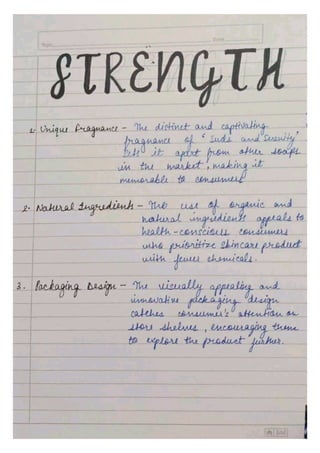 STRENGTH
1. Unique Fragnance - The distinct and captivating
fragnance of 'Suds and Serenity'
sets it apart from other soaps
in the market, making it
memorable to consumers
2. Natural Ingredients - The use of organic and
natural ingredients appeals to
health-conscious consumers
who prioritize skincare product
with fewer chemicals.
3. Packaging Design - The visually appealing and
innovative packaging design
catches consumer's attention on
store shelves, encouraging them
to explore the product further.